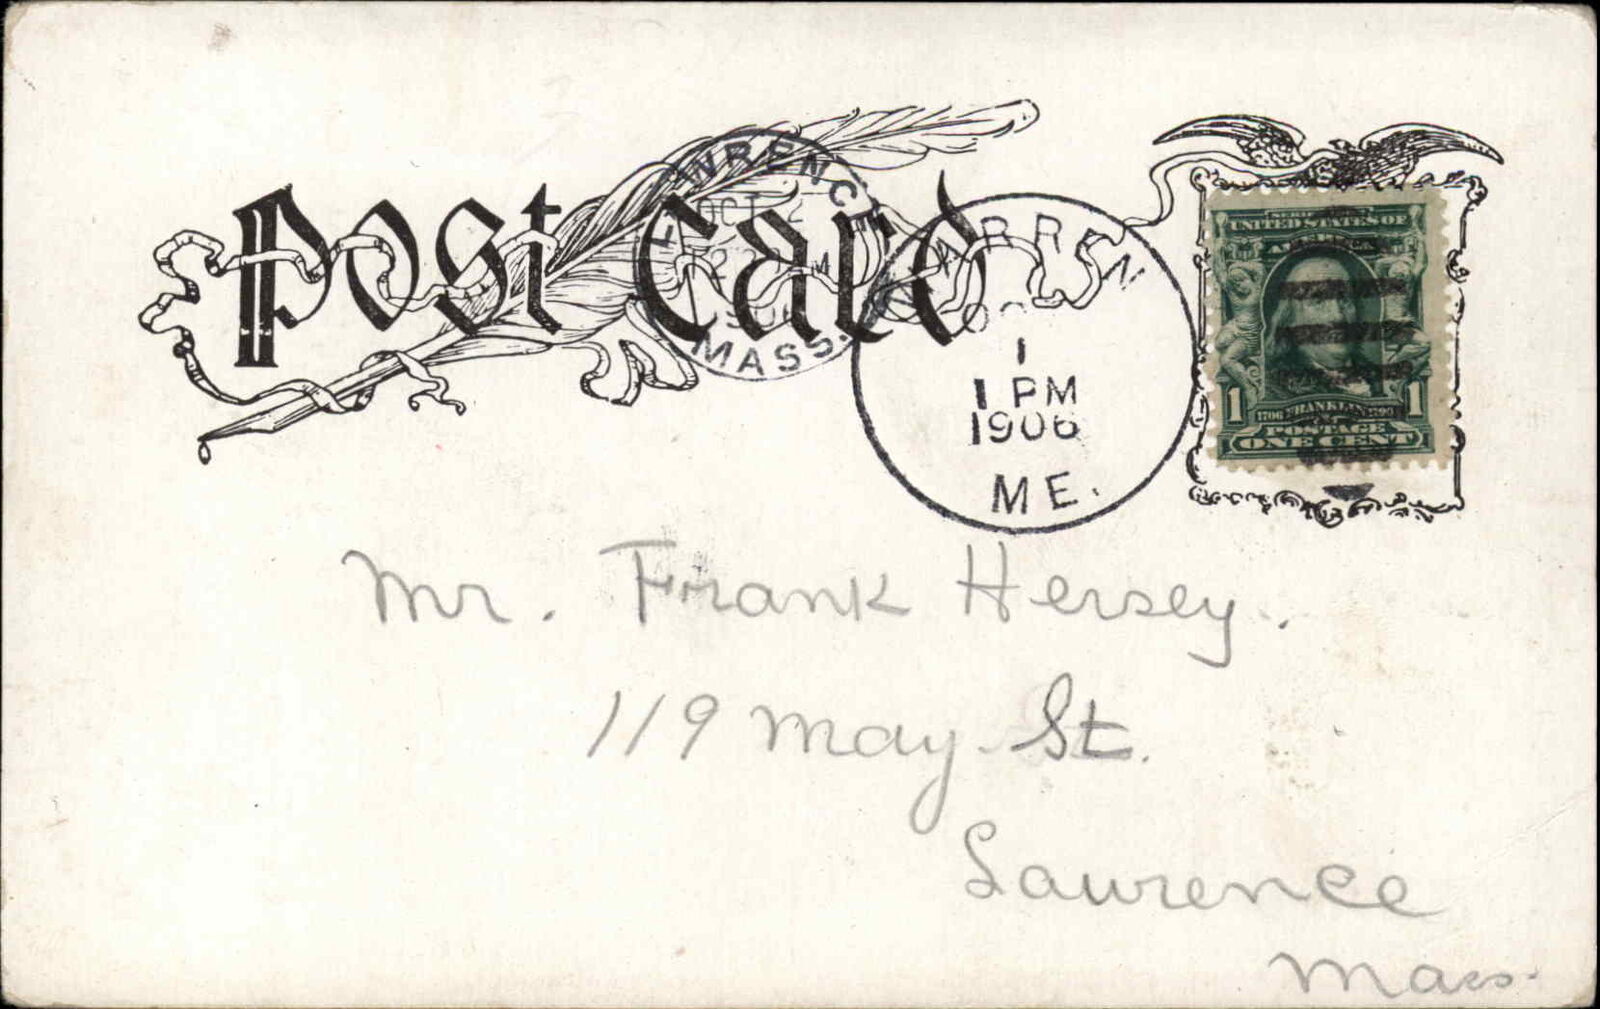 Post Card
LAWRENCE
OCT 2
MASS.
WARREN
1
1 PM
1906
ME.
UNITED STATES OF
AMERICA
1 1706 FRANKLIN 1790 1
POSTAGE
ONE CENT
Mr. Frank Hersey.
119 May St.
Lawrence
Mass.